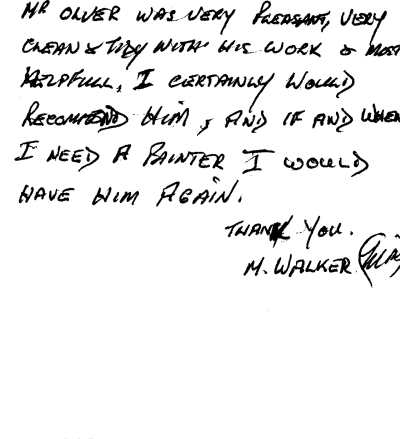 MR OLVER WAS VERY PLEASANT, VERY
CLEAN & TIDY WITH HIS WORK & MOST
HELPFULL, I CERTAINLY WOULD
RECOMMEND HIM, AND IF AND WHEN
I NEED A PAINTER I WOULD
HAVE HIM AGAIN.
THANK YOU.
M. WALKER